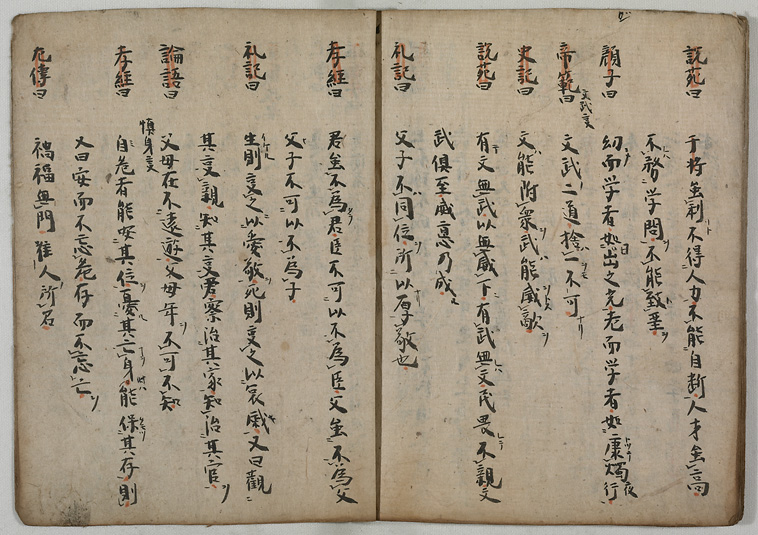 説苑曰　干将雖利不得人力不能自断人才雖高
不務学問不能致聖
顔子曰　幼而学者如日出之光老而学者如秉燭夜行
帝範曰　文武二道捨一不可
文武事
史記曰　文能附衆武能威敵
説苑曰　有文無武以無威下有武無文民畏不親文
武倶至威悳乃成
礼記曰　父子不同位所以厚敬也
孝経曰　君雖不為君臣不可以不為臣父雖不為父
父子不可以不為子
礼記曰　生則事之以愛敬死則事之以哀慼又曰観
其事親知其事君察治其家知治其官
論語曰　父母在不遠遊父母年不可不知
慎身事
孝経曰　自危者能安其位憂其亡身能保其存則
又曰安而不忘危存而不忘亡
左傳曰　禍福無門唯人所召